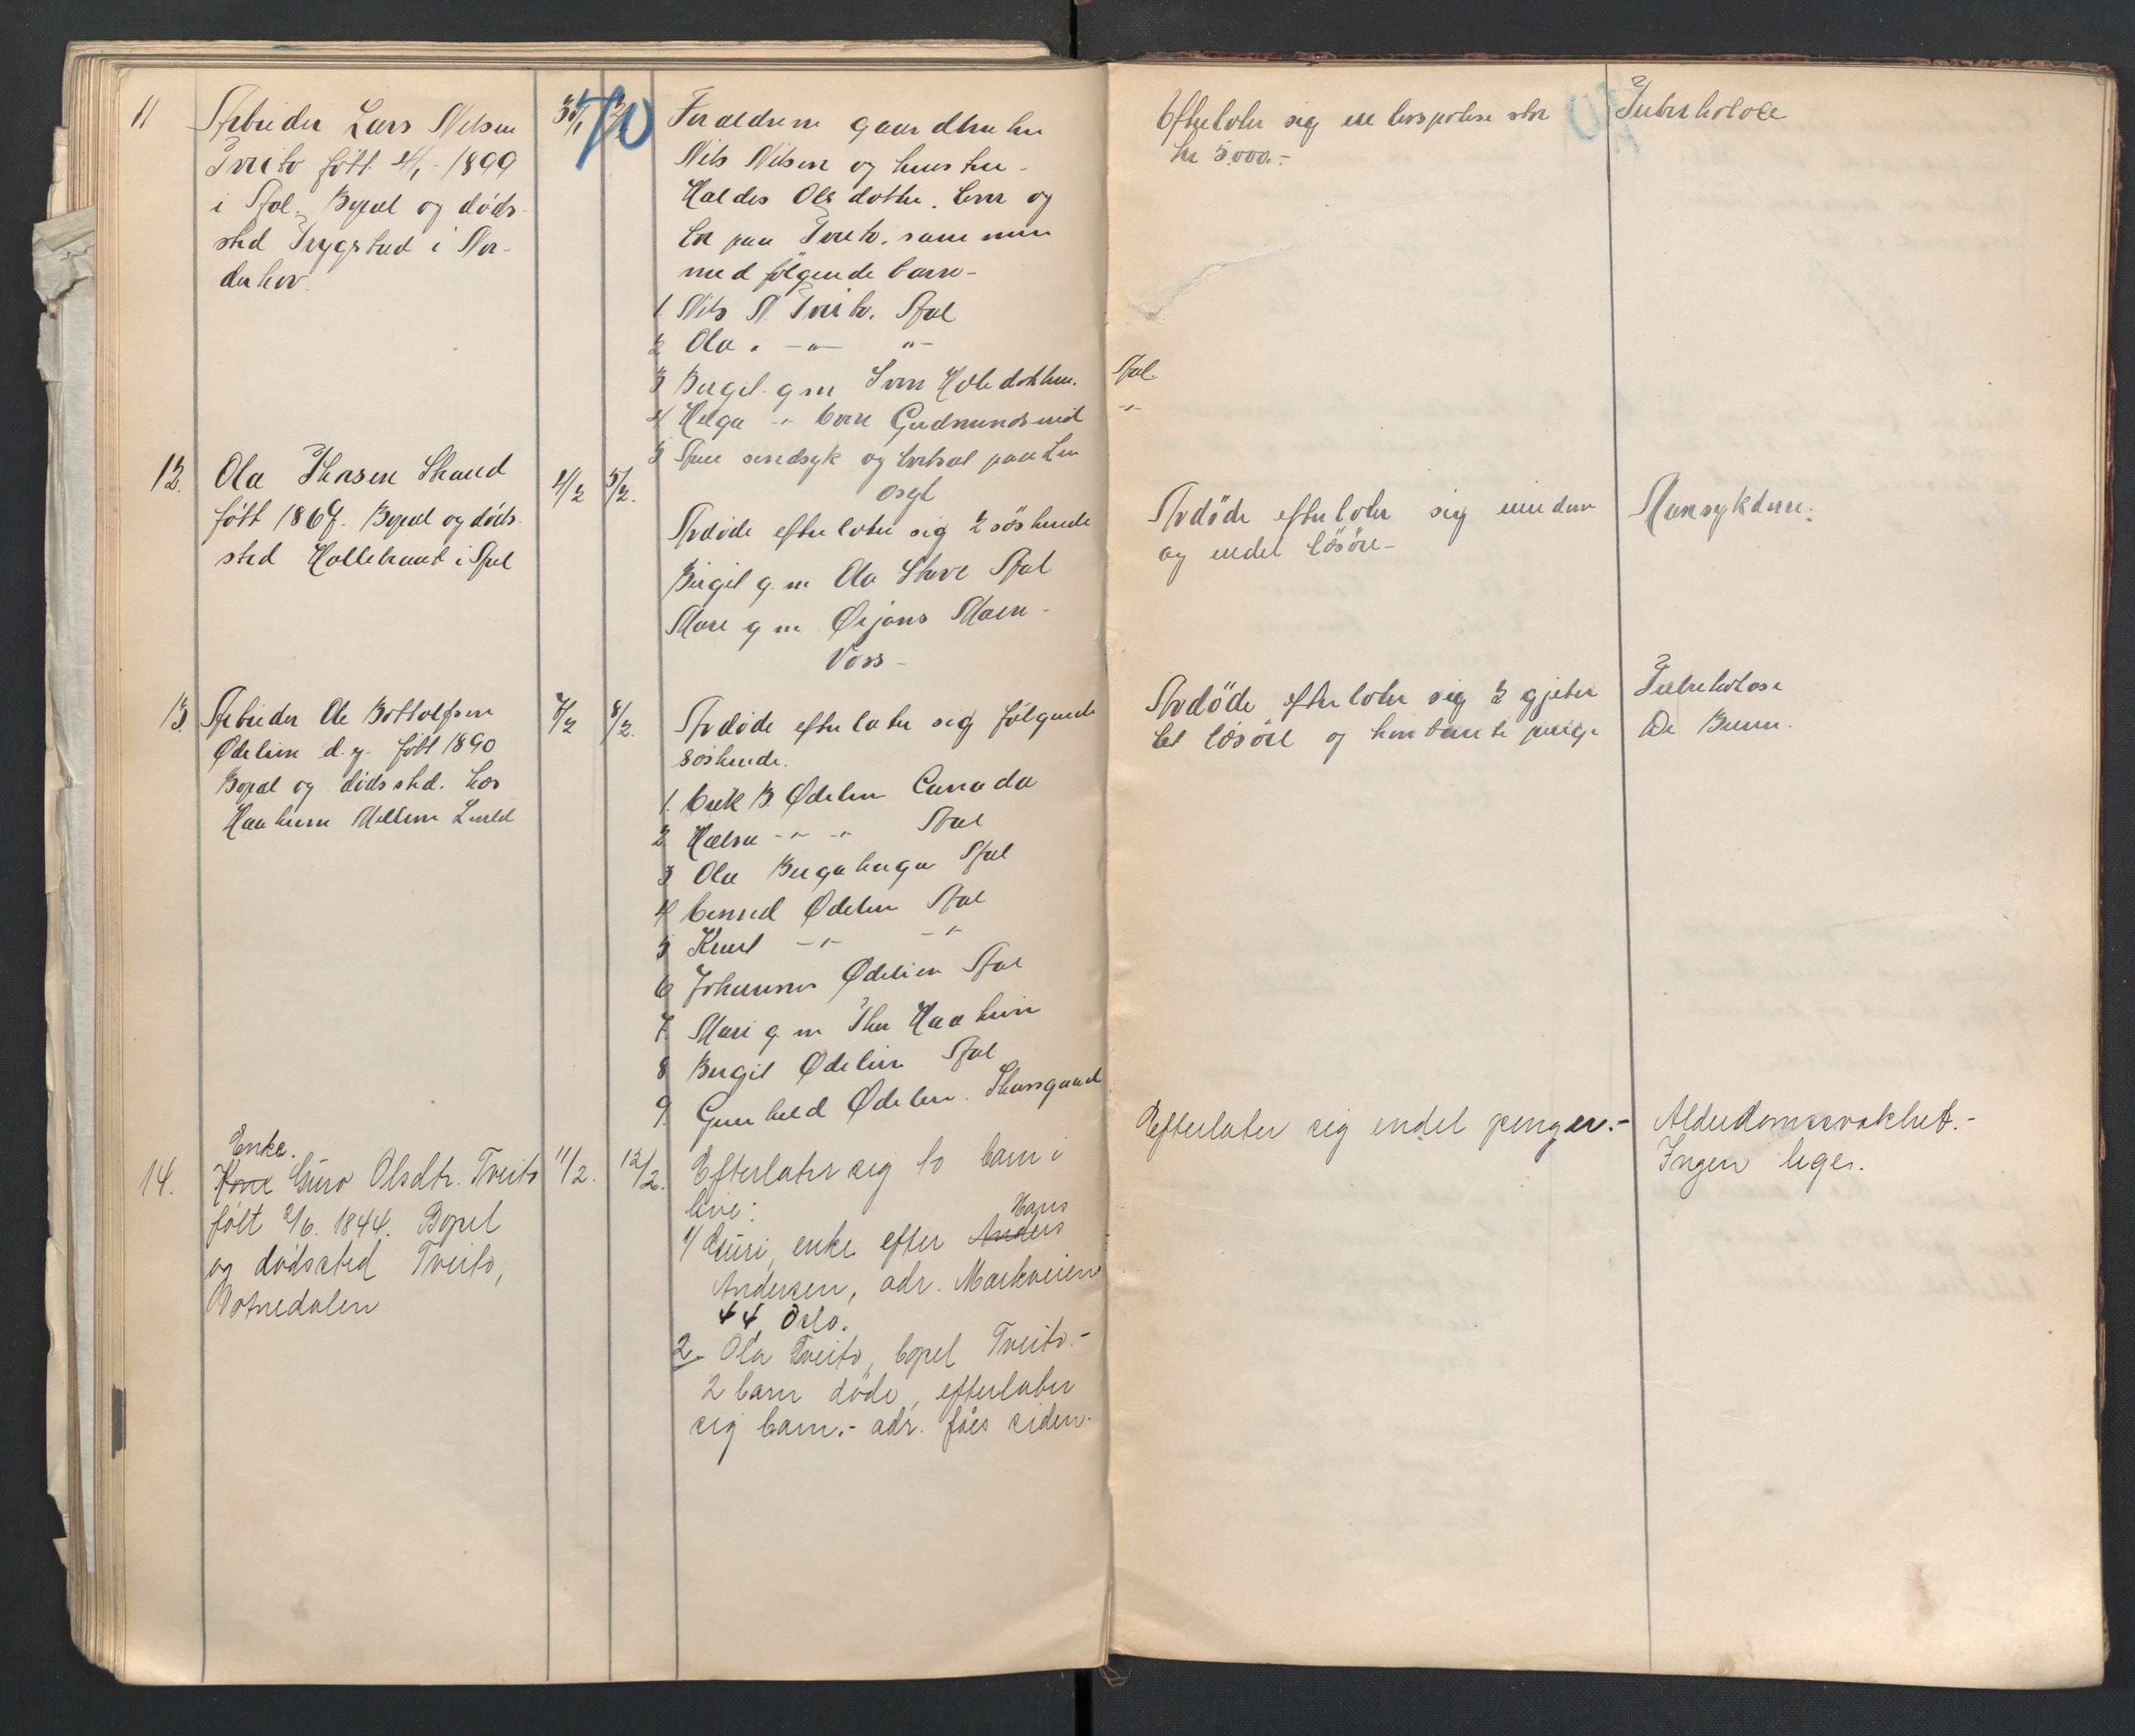 11 Arbeider Lars Nilsen
Tveito født 4/1 - 1899
i Aal. Bopæl og døds-
sted Trygstad i No-
derhov.
30/1
70
Foraldrene gaardbruker
Nils Nilsen og hustru
Haldis Olsdotter. lever og
bor paa Tveito. sammen
med følgende barn-
1. Nils N. Tveito. Aal
2 Ola " -"- "-
3 Bergit. g m Sven Holedokken. Aal.
4 Helga -"- Gudmundsrud -"-
5 sindsyk og
asyl
Efterlater sig en livspolise stor
kr 5.000.-
Tuberkolose
12. Ola Thorsen Skaud
født 1867. Bopæl og døds-
sted i Aal
4/2
5/2.
Avdøde efterlater sig 2 søskende
Birgit g. m Ola Aal
Mari g m Ørjans Moen -
Voss -
Avdøde efterlater sig eiendom
og endel løsøre-
Mavesykdom.
13. Arbeider Ole Bottolfsen
Ødelien d.y. født 1890
Bopæl og dødssted. hos
7/2
8/2.
Avdøde efterlater sig følgende
søskende.
1. Erik B. Ødelien Canada
2. -"- -"- Aal
3 Ola Bergahaga Aal
4 Ødelien Aal
5 Knut -"- -"-
6 Johannes Ødelien Aal
7. Mari g. m Thor
8 Bergit Ødelien Aal
9. Gunhild Ødelien.
Avdøde efterlater sig 2 gjeter
litt løsøre og kontante penge
Tuberkolose
Dr
14. Enke.
Kone Guro Olsdtr. Tveito
født 2/6. 1844. Bopel
og dødssted Tveito,
Votnedalen
11/2.
12/2.
Efterlater sig to barn i
live:
1/ Guri, enke efter Anders Hans
Andersen, adr. Markveien
44, Oslo.
2. Ola Tveito, bopel Tveito.-
2 barn døde, efterlater
sig barn.- adr. fåes siden.
Efterlater sig endel penger.-
Alderdomssvakhet.-
Ingen lege.